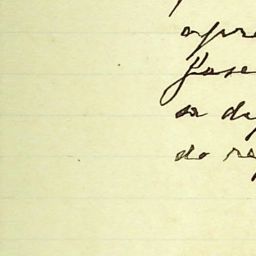 apre
fase
sa de
do re